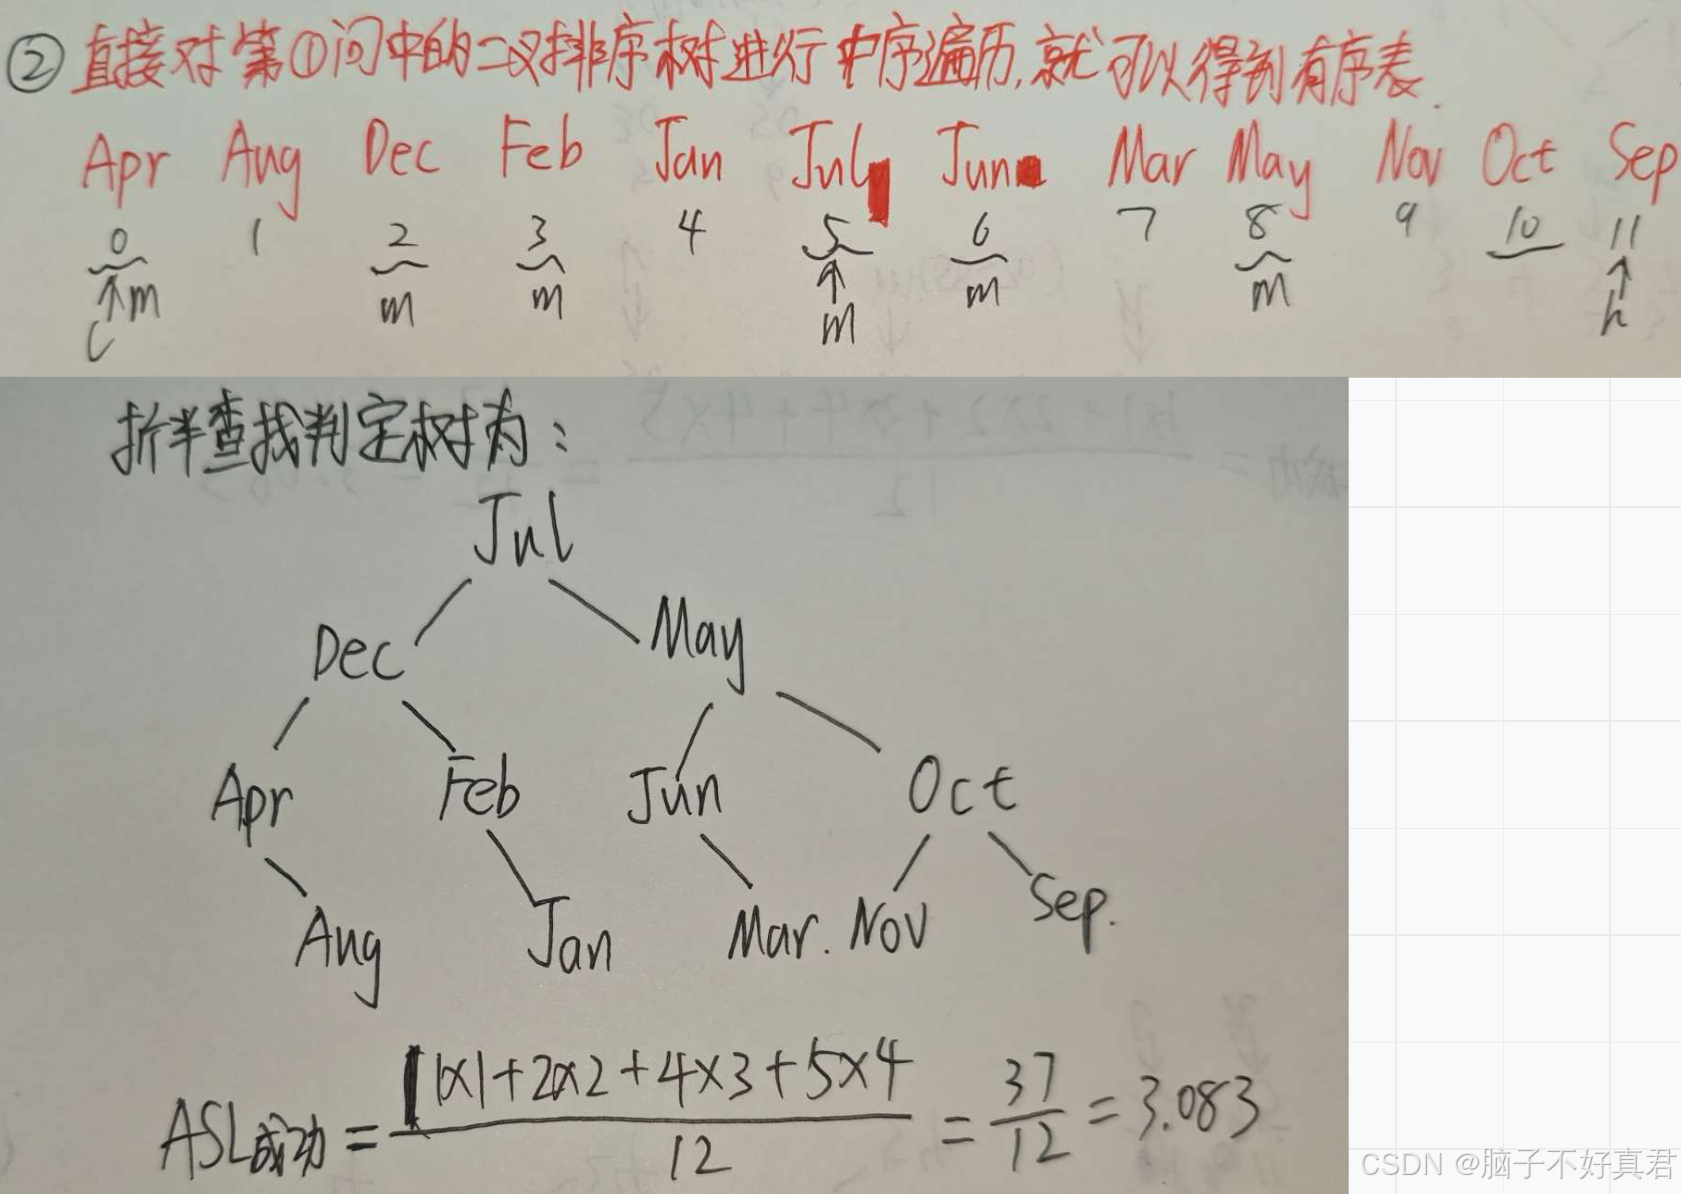 ② 直接对第①问中的二叉排序树进行中序遍历,就可以得到有序表.
Apr Aug Dec Feb Jan Jul Jun Mar May Nov Oct Sep
0 1 2 3 4 5 6 7 8 9 10 11
↑m m m ↑ m m ↑
L m h
折半查找判定树为:
Jul
Dec May
Apr Feb Jun Oct
Aug Jan Mar. Nov Sep.
ASL成功 = (1×1+2×2+4×3+5×4)/12 = 37/12 = 3.083
CSDN @脑子不好真君